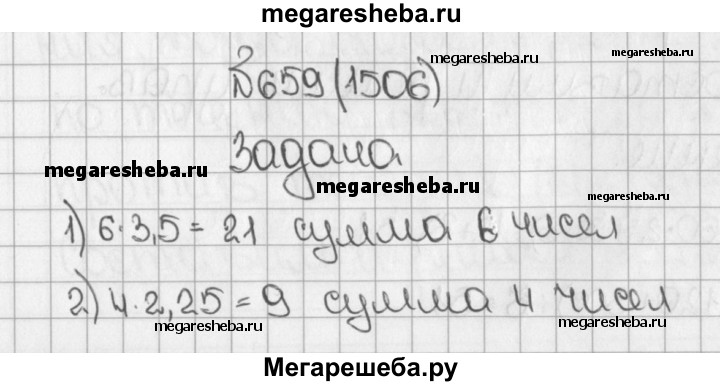 megaresheba.ru
№659(1506)
Задача
megaresheba.ru
megaresheba.ru
megaresheba.ru
1) 6·3,5 = 21 сумма 6 чисел
2) 4·2,25 = 9 сумма 4 чисел
megaresheba.ru
megaresheba.ru
Мегарешеба.ру